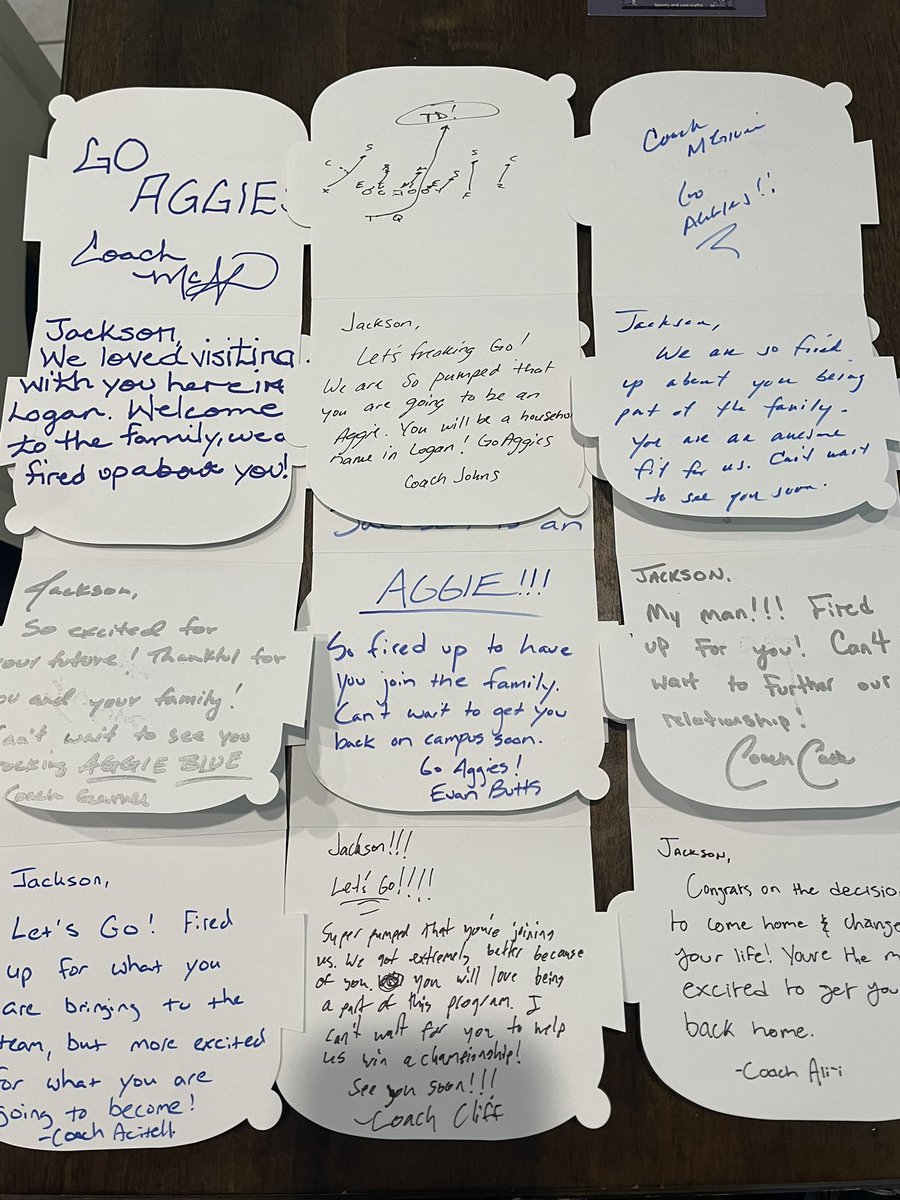 Spooky and cute crafts!
GO
AGGIES
Coach
Jackson,
We loved visiting
with you here in
Logan. Welcome
to the family, we
fired up about you!
TD!
C
S
S
C
X
E
E
S
F
Z
T
Q
Jackson,
Let's freaking Go!
We are So pumped that
you are going to be an
Aggie. You will be a household
name in Logan! Go Aggies
Coach Johns
Coach
Go
AGGIES!!
Jackson,
We are so fired
up about you being
part of the family.
You are an awesome
fit for us. Can't wait
to see you soon.
Jackson,
So excited for
your future! Thankful for
you and your family!
Can't wait to see you
rocking AGGIE BLUE
Coach
Jackson is an
AGGIE!!!
So fired up to have
you join the family.
Can't wait to get you
back on campus soon.
Go Aggies!
Evan Butts
JACKSON.
My man!!! Fired
up for you! Can't
wait to further our
relationship!
Coach
Jackson,
Let's Go! Fired
up for what you
are bringing to the
team, but more excited
for what you are
going to become!
-Coach
Jackson!!!
Let's Go!!!!
Super pumped that you're joining
us. We got extremely better because
of you. you will love being
a part of this program. I
can't wait for you to help
us win a championship!
See you soon!!!
-Coach Cliff
JACKSON,
Congrats on the decision
to come home & change
your life! Youre the m
excited to get you
back home.
-Coach